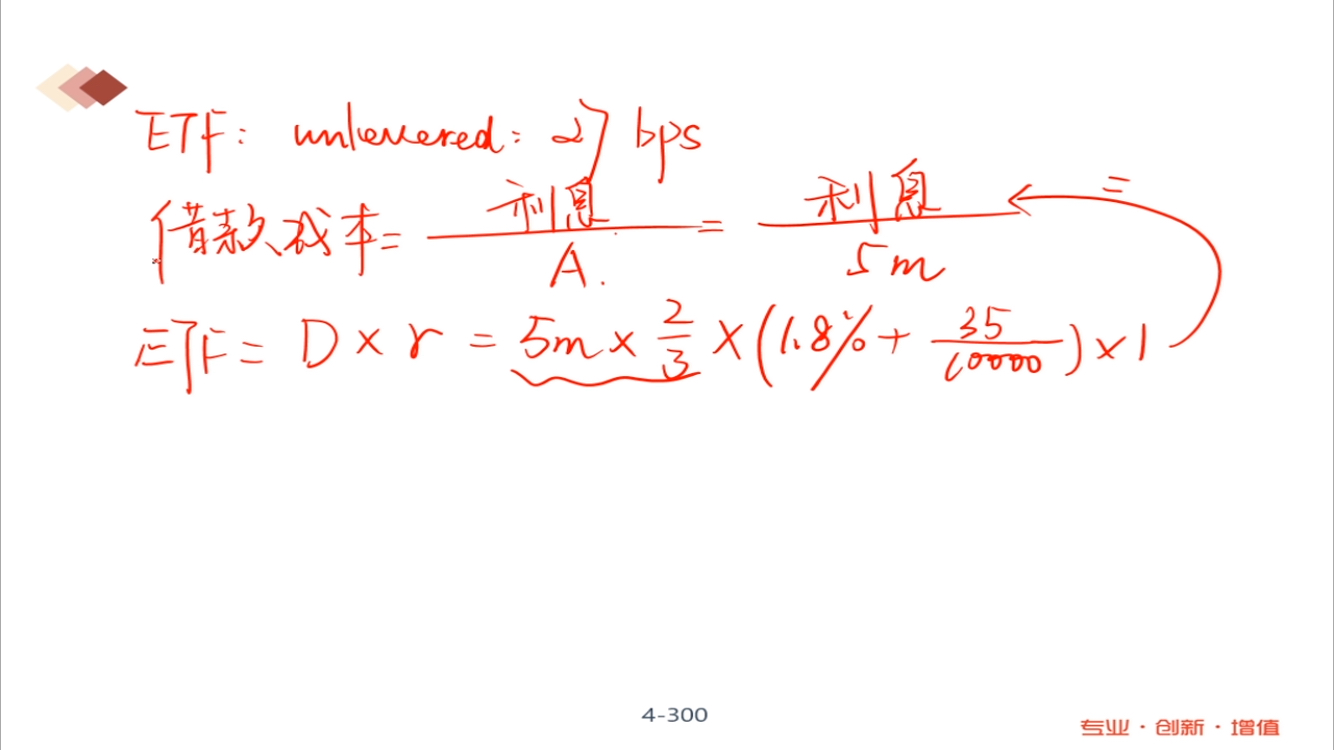 ETF: unlevered: 27 bps
借款成本 = 利息/A. = 利息/5m ← =
ETF = D × r = 5m × 2/3 × (1.8% + 35/10000) × 1
4-300
专业·创新·增值